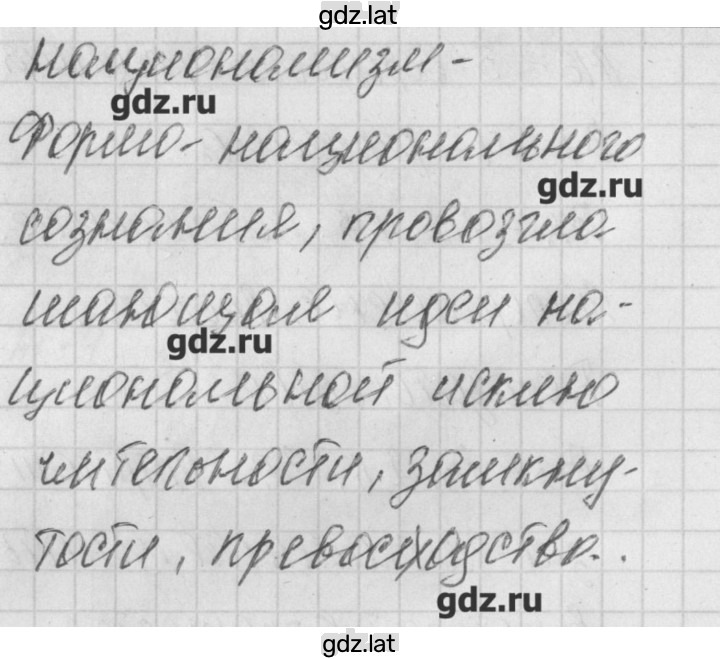 gdz.lat
национализм-
gdz.ru
Форма- национального
gdz.ru
сознания, провозгла
шающая идеи на-
gdz.ru
циональной исклю
чительности, замкну-
тости, превосходства.
gdz.ru
gdz.lat